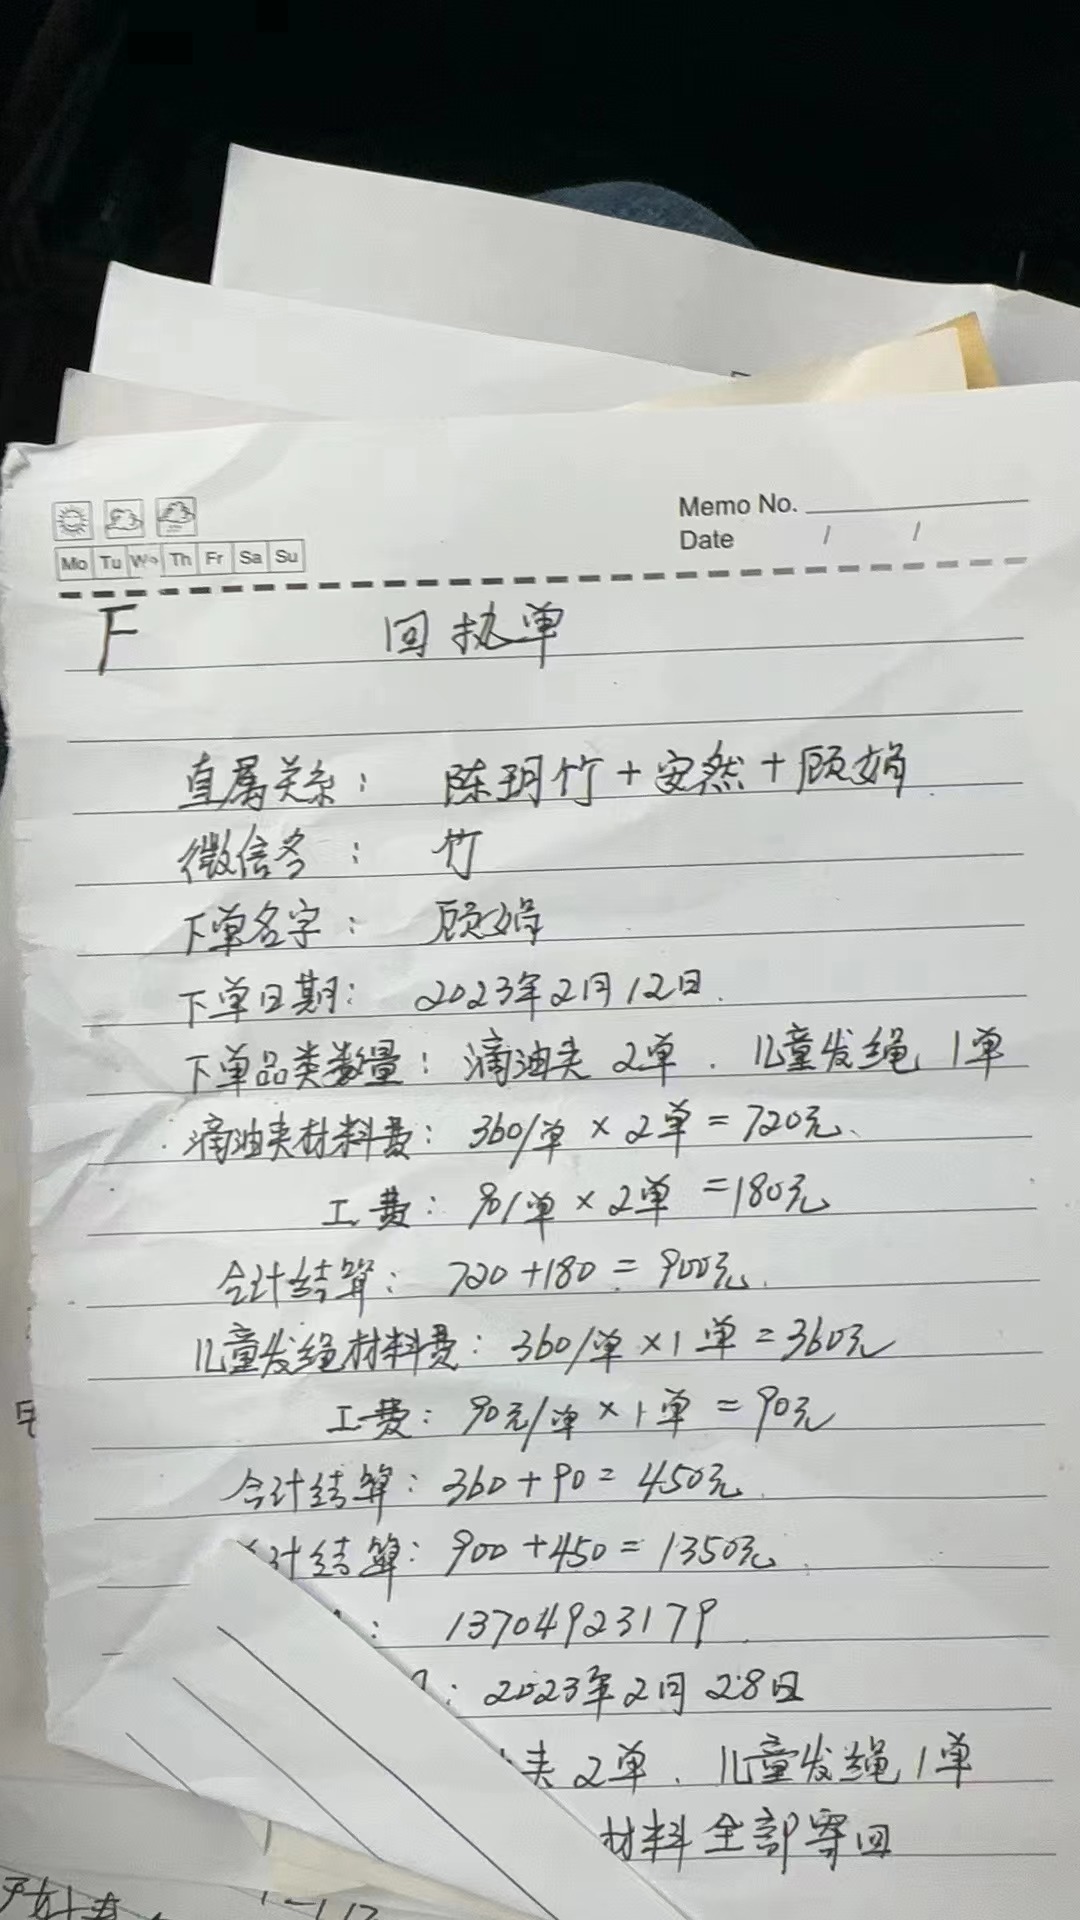 Memo No.
Mo Tu We Th Fr Sa Su
Date / /
F 回执单
直属关系： 陈玥竹+安然+顾娟
微信名： 竹
下单名字： 顾娟
下单日期： 2023年2月12日.
下单品类数量：滴油夹 2单、儿童发绳 1单
滴油夹材料费：360/单×2单=720元、
工费：90/单×2单=180元
合计结算：720+180=900元.
儿童发绳材料费：360/单×1单=360元
工费：90元/单×1单=90元
合计结算：360+90=450元.
计结算：900+450=1350元.
：13704923179.
：2023年2月28日
夹 2单、儿童发绳 1单
材料全部寄回